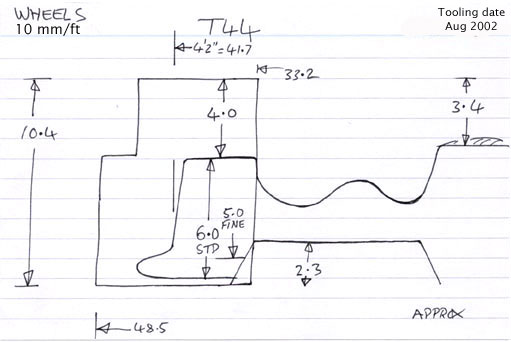 WHEELS
10 mm/ft
T44
Tooling date
Aug 2002
4'2" = 41.7
33.2
10.4
4.0
3.4
5.0
FINE
6.0
STD
2.3
48.5
APPROX